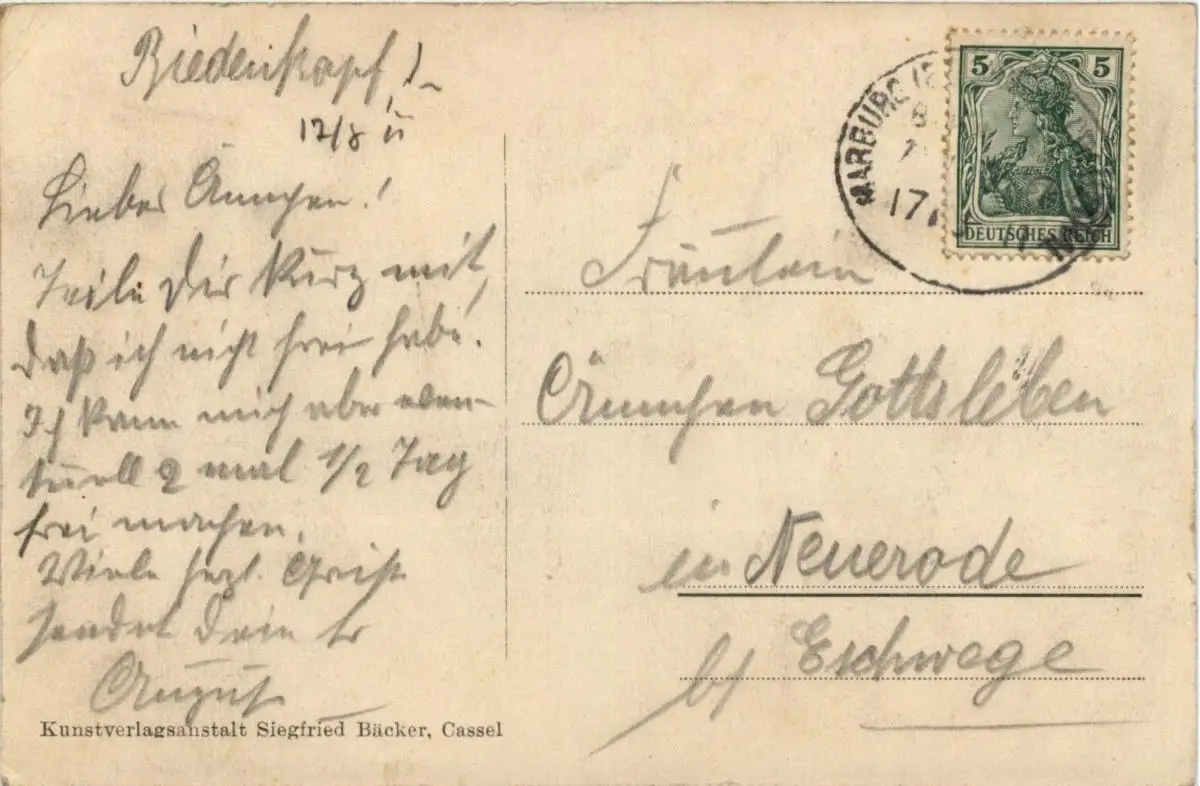 Biedenkopf,
17/8 11
Lieber Ännchen!
Teile Dir kurz mit,
daß ich nicht frei habe.
Ich kann mich aber even-
tuell 2 mal 1/2 Tag
frei machen.
Viele herzl. Grüße
sendet Dein lb
August
Kunstverlagsanstalt Siegfried Bäcker, Cassel
MARBURG
17
5 5
DEUTSCHES REICH
Fräulein
Ännchen Gottsleben
in Neuerode
b/ Eschwege